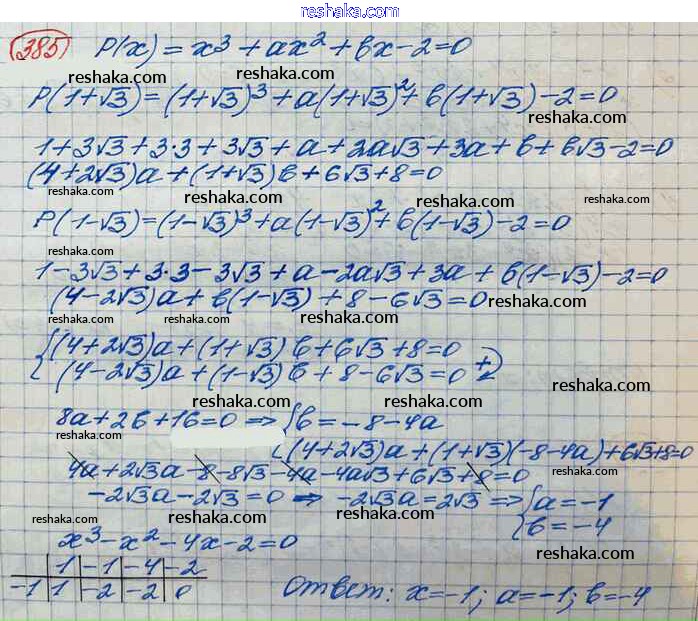 reshaka.com
385 P(x) = x³ + ax² + bx - 2 = 0
reshaka.com reshaka.com
P(1+√3) = (1+√3)³ + a(1+√3)² + b(1+√3) - 2 = 0
reshaka.com
1 + 3√3 + 3·3 + 3√3 + a + 2a√3 + 3a + b + b√3 - 2 = 0
reshaka.com
(4+2√3)a + (1+√3)b + 6√3 + 8 = 0
reshaka.com reshaka.com reshaka.com
P(1-√3) = (1-√3)³ + a(1-√3)² + b(1-√3) - 2 = 0
reshaka.com
1 - 3√3 + 3·3 - 3√3 + a - 2a√3 + 3a + b(1-√3) - 2 = 0
(4-2√3)a + b(1-√3) + 8 - 6√3 = 0
reshaka.com
reshaka.com reshaka.com reshaka.com
{(4+2√3)a + (1+√3)b + 6√3 + 8 = 0
(4-2√3)a + (1-√3)b + 8 - 6√3 = 0 +
reshaka.com reshaka.com
8a + 2b + 16 = 0 ⇒ {b = -8 - 4a
reshaka.com
(4+2√3)a + (1+√3)(-8-4a) + 6√3 + 8 = 0
reshaka.com
4a + 2√3a - 8 - 8√3 - 4a - 4a√3 + 6√3 + 8 = 0
reshaka.com
-2√3a - 2√3 = 0 ⇒ -2√3a = 2√3 ⇒ {a = -1
b = -4
reshaka.com reshaka.com reshaka.com
x³ - x² - 4x - 2 = 0
reshaka.com
1 -1 -4 -2
-1 1 -2 -2 0
Ответ: x = -1; a = -1; b = -4
reshaka.com reshaka.com